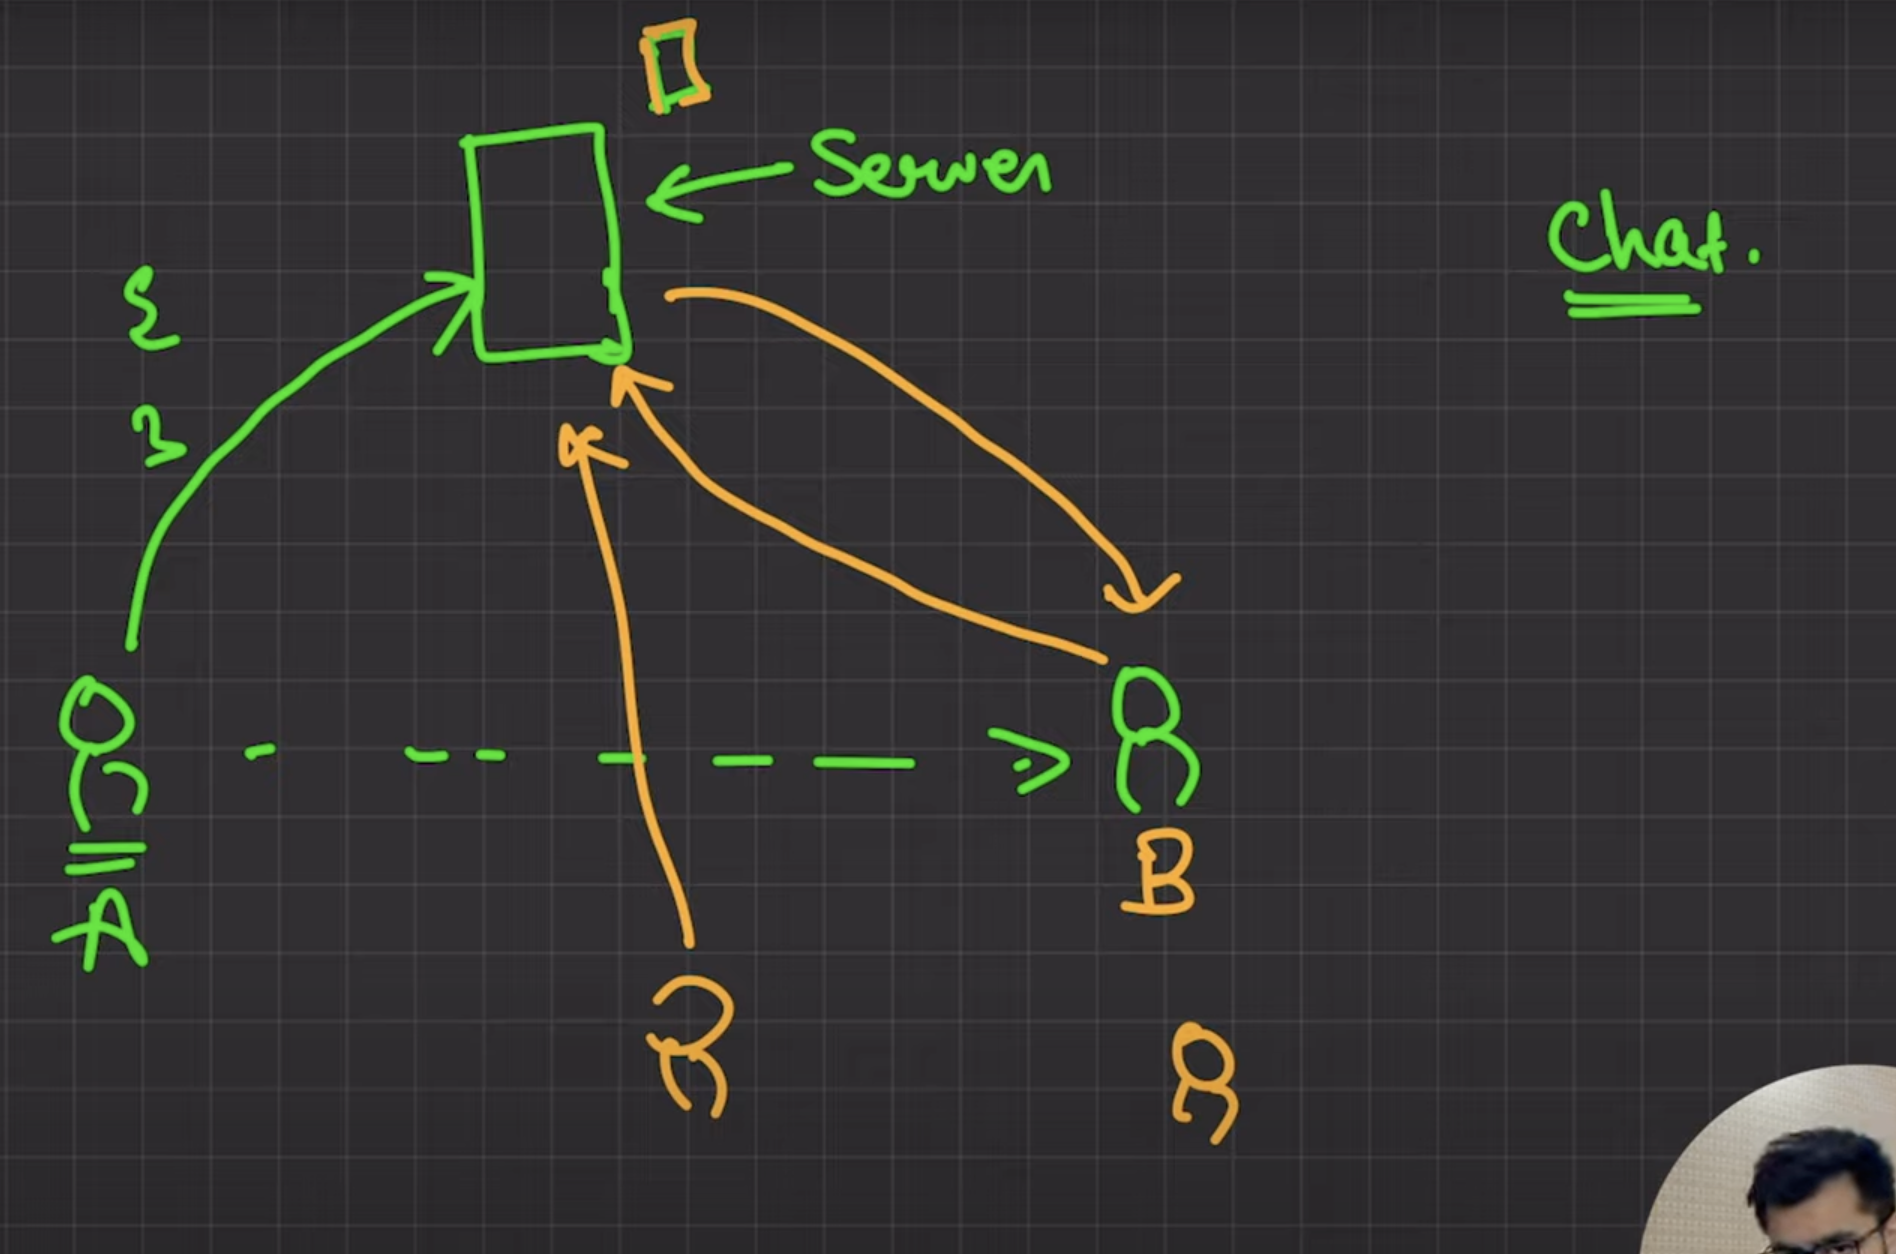 Server
Chat.
{
}
A
B